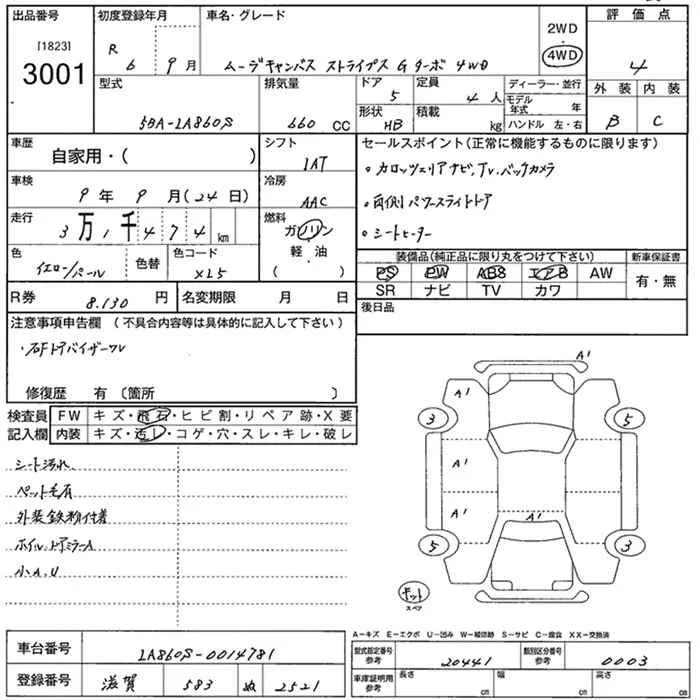 出品番号
[1823]
3001
初度登録年月
R 6 9月
車名・グレード
ムーヴキャンバス ストライプス Gターボ 4WD
2WD・
4WD
評価点
4
外装 内装
B C
型式
5BA-LA860S
排気量
660 CC
ドア
5
形状
HB
定員
4人
積載
kg
ディーラー・並行
モデル年式 年
ハンドル 左・右
車歴
自家用・( )
シフト
IAT
車検
9年9月(24日)
冷房
AAC
走行
3万1千474 km
燃料
ガソリン
軽・油
( )
色
イエロー/パール
色替
色コード
XL5
R券 8.130 円
名変期限 月 日
セールスポイント(正常に機能するものに限ります)
・カロッツェリアナビ,Tv.バックカメラ
・両側パワースライドドア
・シートヒーター
装備品(純正品に限り丸をつけて下さい)
PS PW ABS エアB AW
SR ナビ TV カワ
新車保証書
有・無
後日品
注意事項申告欄(不具合内容等は具体的に記入して下さい)
修復歴 有〔箇所 〕
検査員
記入欄
FW キズ・飛石・ヒビ割・リペア跡・X要
内装 キズ・汚レ・コゲ・穴・スレ・キレ・破レ
シート汚れ
ペット毛有
外装鉄粉付着
ホイル,ドアミラーA
小A,U
A'
3
5
A'
A'
A'
5
3
キット
スペア
A-キズ E-エクボ U-凹み W-補修跡 S-サビ C-腐食 XX-交換済
車台番号 LA860S-0014781
登録番号 滋賀 583 ぬ 2521
型式指定番号
参考
20441
類別区分番号
参考
0003
車庫証明用
参考
長さ cm 幅 cm 高さ cm